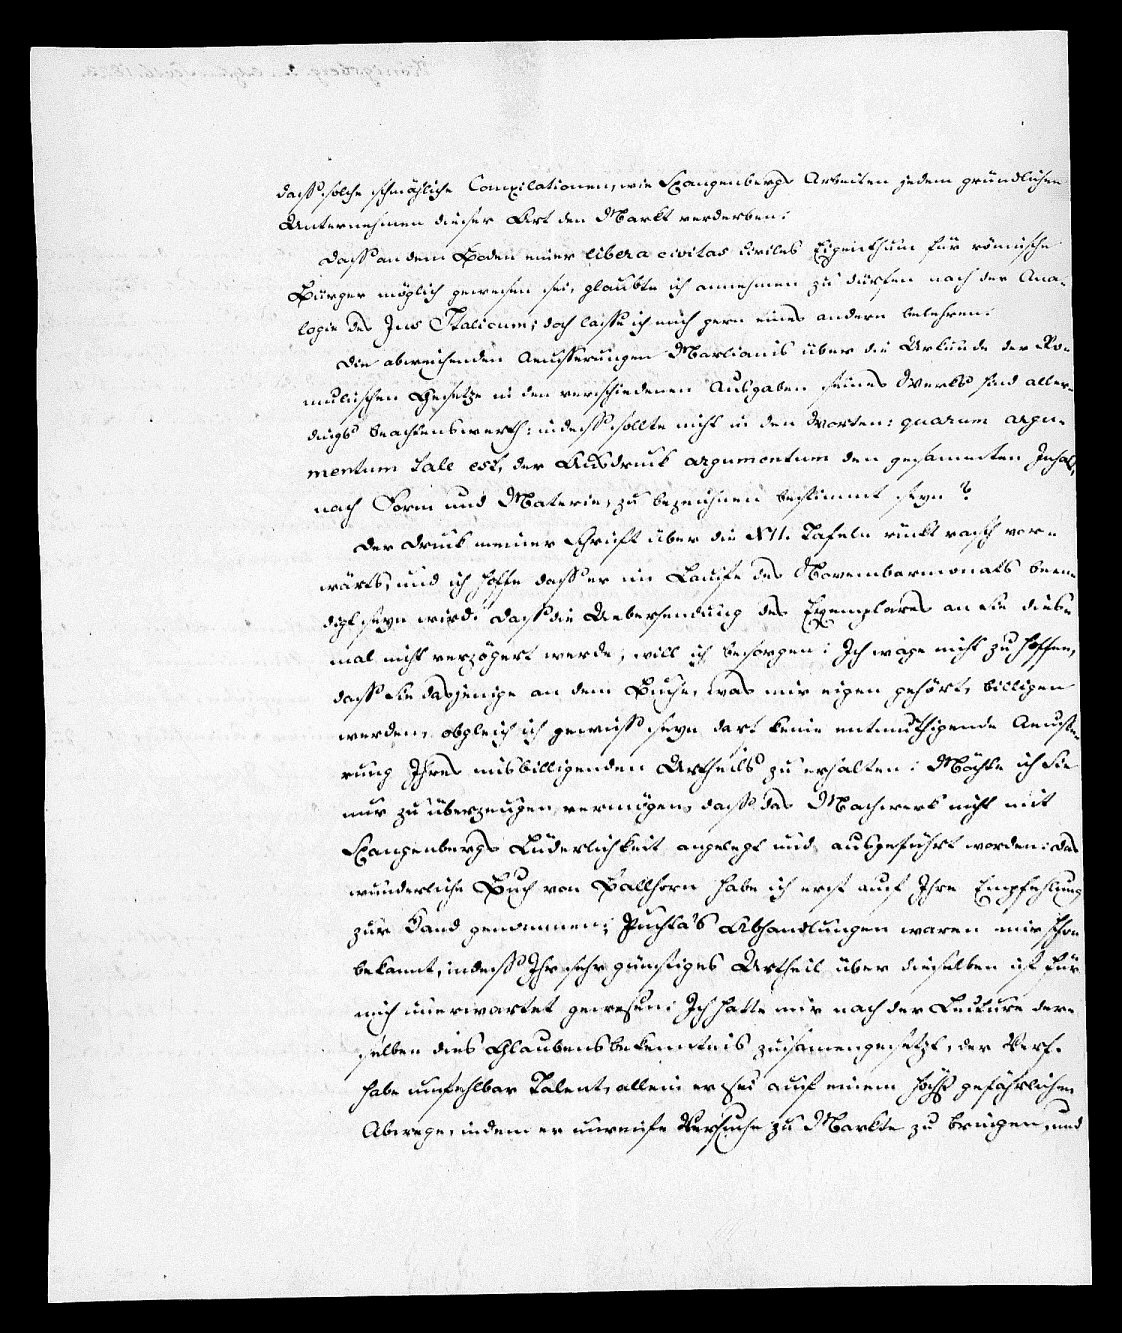 dass solche schmähliche Compilationen, wie Spangenbergs Arbeiten jedem gründlichen
Unternehmen dieser Art den Markt verderben.
Dass an dem Boden einer libera civitas civiles Eigenthum für römische
Bürger möglich gewesen sei, glaubte ich annehmen zu dürfen nach der Ana-
logie des Jus Italicum; doch lasse ich mich gern eines andern belehren.
Die abweichenden Aeusserungen Marlianis über die Urkunde der Ro-
mulischen Gesetze in den verschiedenen Ausgaben seines Werks sind aller-
dings beachtenswerth: indess sollte nicht in den Worten: quarum argu-
mentum tale est, der Ausdruck argumentum den gesammten Inhalt,
nach Form und Materie, zu bezeichnen bestimmt seyn?
Der Druck meiner Schrift über die XII. Tafeln rückt rasch vor-
wärts, und ich hoffe dass er im Laufe des Novembermonats been-
digt seyn wird. Dass die Uebersendung des Exemplares an Sie dies-
mal nicht verzögert werde, will ich besorgen. Ich wage nicht zu hoffen,
dass Sie dasjenige an dem Buche, was mir eigen gehört, billigen
werden, obgleich ich gewiss seyn darf keine entmuthigende Aeusse-
rung Ihres misbilligenden Urtheils zu erhalten. Möchte ich Sie
nur zu überzeugen vermögen, dass das Machwerk nicht mit
Spangenbergs Lüderlichkeit angelegt und ausgeführt worden. Das
wunderliche Buch von Ballhorn habe ich erst auf Ihre Empfehlung
zur Hand genommen; Puchta's Abhandlungen waren mir schon
bekannt, indess Ihr sehr günstiges Urtheil über dieselben ist für
mich unerwartet gewesen. Ich hatte mir nach der Lecture der-
selben dies Glaubensbekenntnis zusamengesetzt, der Verf.
habe unfehlbar Talent, allein er sei auf einem höchst gefährlichen
Abwege, indem er unreife Versuche zu Markte zu bringen, und